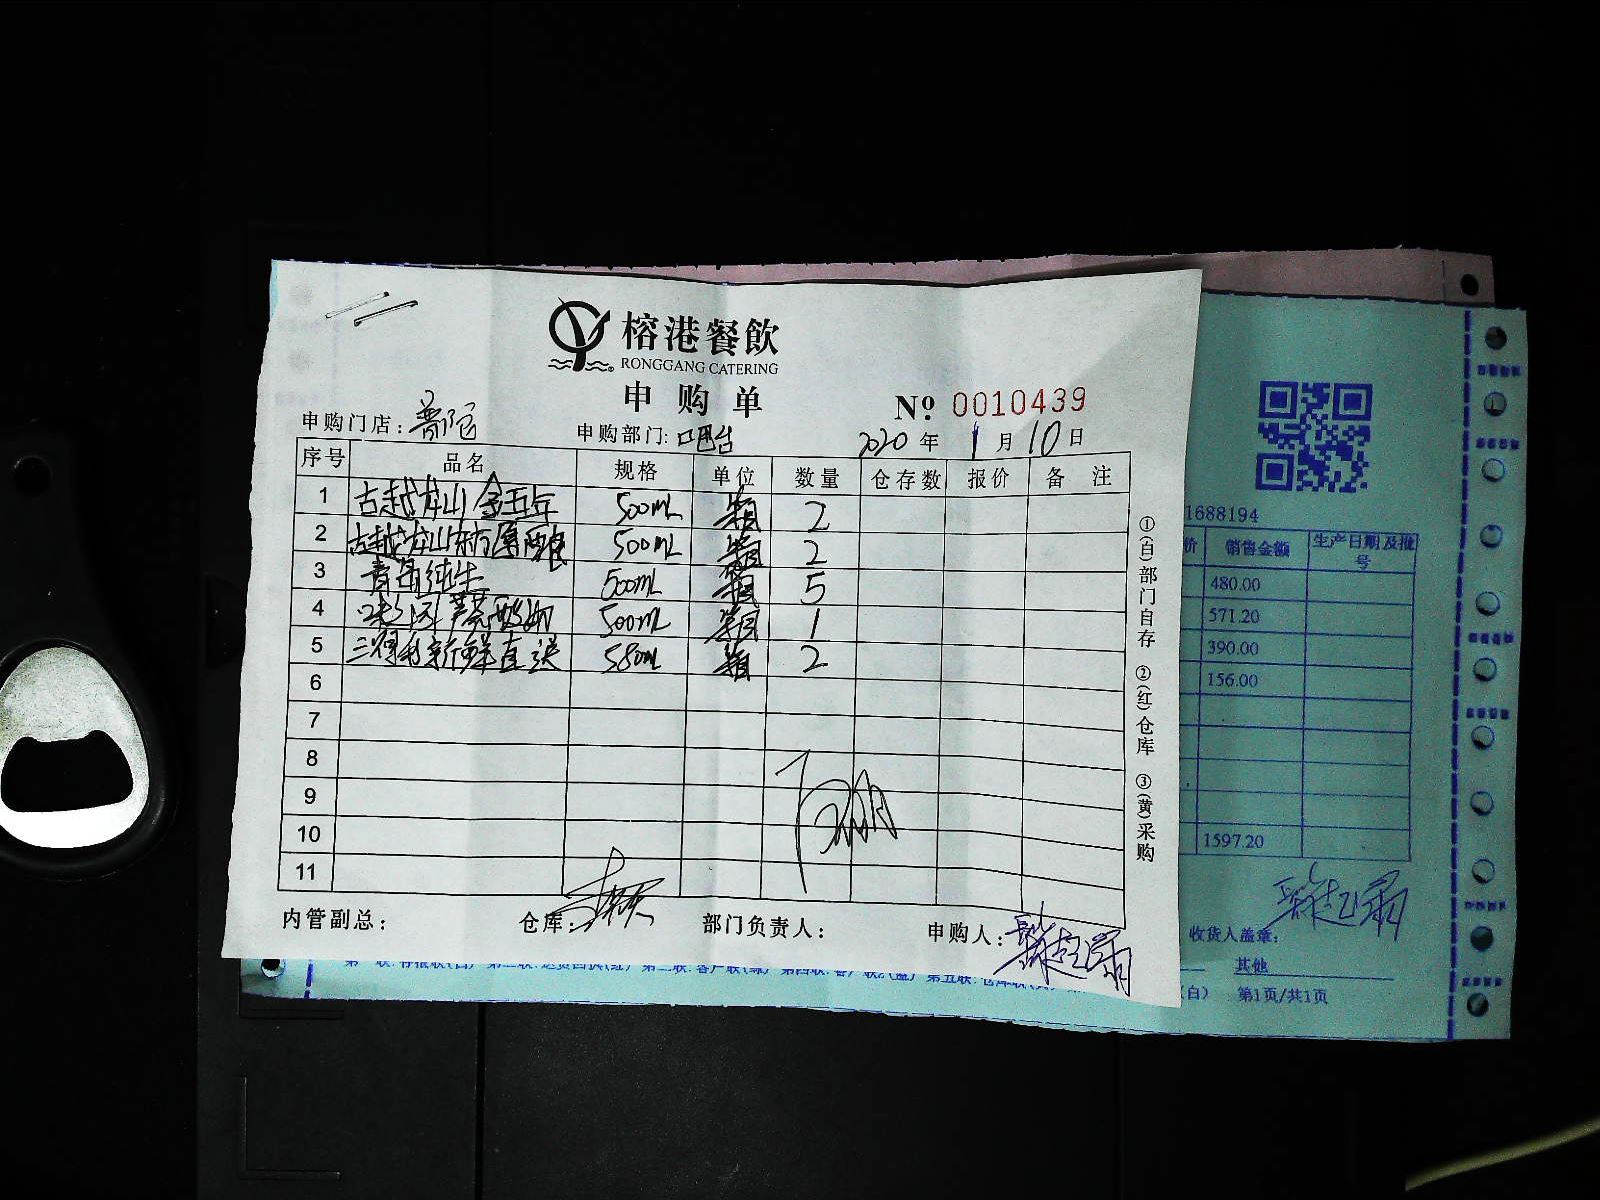 榕港餐飲
RONGGANG CATERING
申购单
Nº 0010439
申购门店：普陀 申购部门：吧台 2020年1月10日
序号 品名 规格 单位 数量 仓存数 报价 备注
1 古越龙山金五年 500mL 箱 2
2 古越龙山 500mL 箱 2
3 青岛纯生 500mL 箱 5
4 500mL 箱 1
5 三得利新鲜直送 580mL 箱 2
6
7
8
9
10
11
内管副总： 仓库： 部门负责人： 申购人：
①(白)部门自存 ②(红)仓库 ③(黄)采购
1688194
价 销售金额 生产日期及批号
480.00
571.20
390.00
156.00
1597.20
收货人盖章：
其他
(白) 第1页/共1页